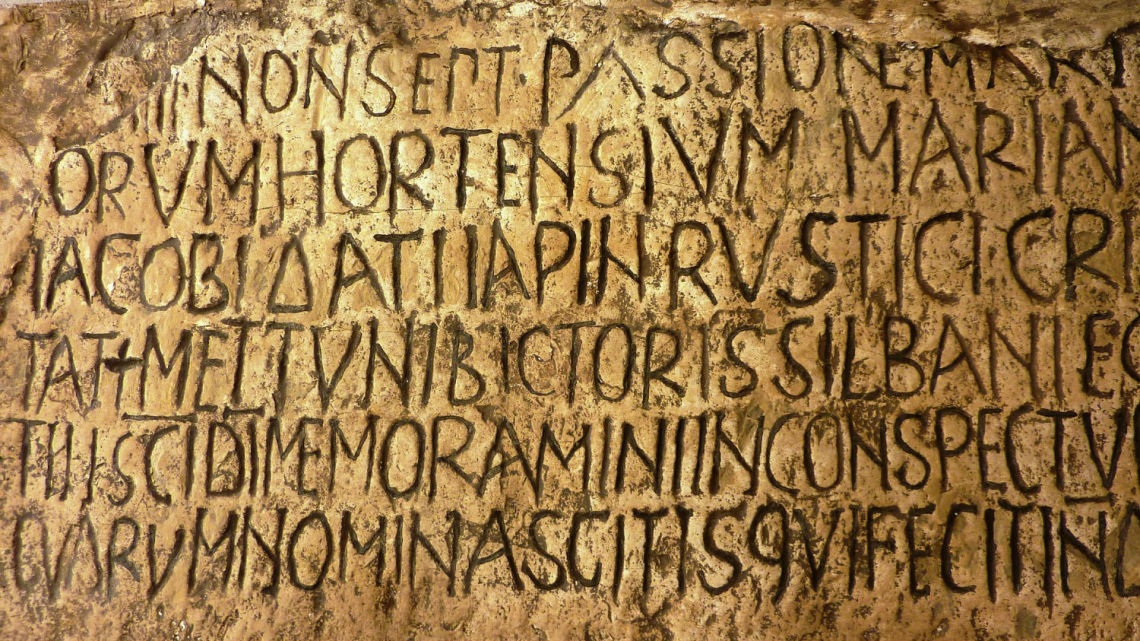 IIII NON SEPT PASSIONE MARTI
ORVM HORTENSIVM MARIAN
IACOBI DATI IAPIN RVSTICI CRI
TATI METTVNI BICTORIS SILBANI EG
TII SCI DI MEMORAMINI IN CONSPECTV
QVARVM NOMINA SCITIS QVI FECIT IN